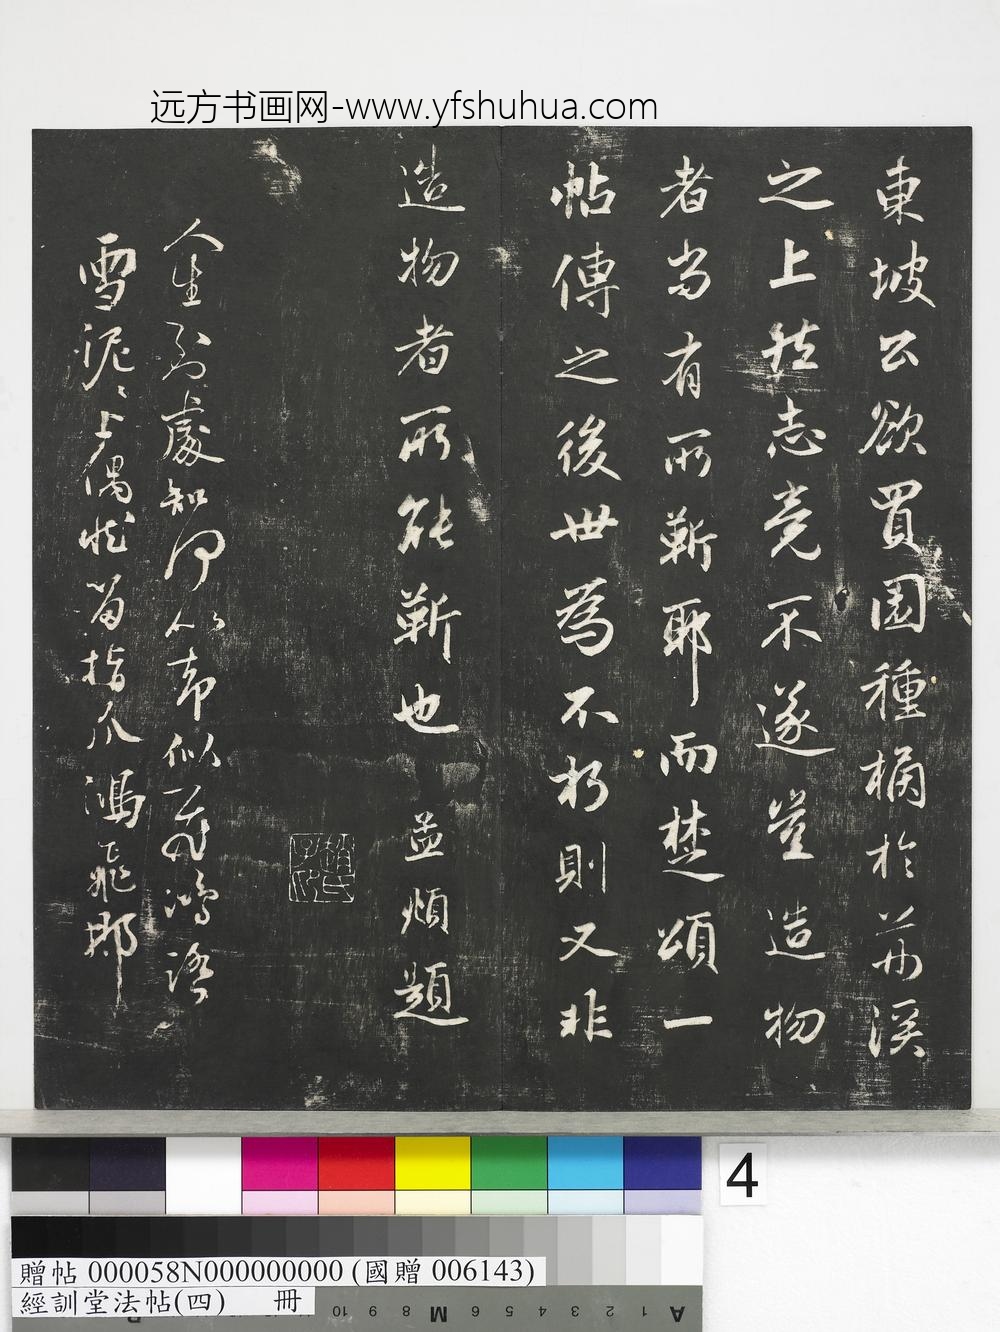 远方书画网-www.yfshuhua.com
東坡公欲買園種橘於荊溪
之上然志竟不遂豈造物
者尚有所靳耶而楚頌一
帖傳之後世為不朽則又非
造物者所能靳也孟頫題
趙氏子印
人生到處知何似應似飛鴻踏
雪泥〻上偶然留指爪鴻飛那
4
贈帖 000058N000000000 (國贈 006143)
經訓堂法帖(四) 冊
A 1 2 3 4 5 6 M 8 9 10